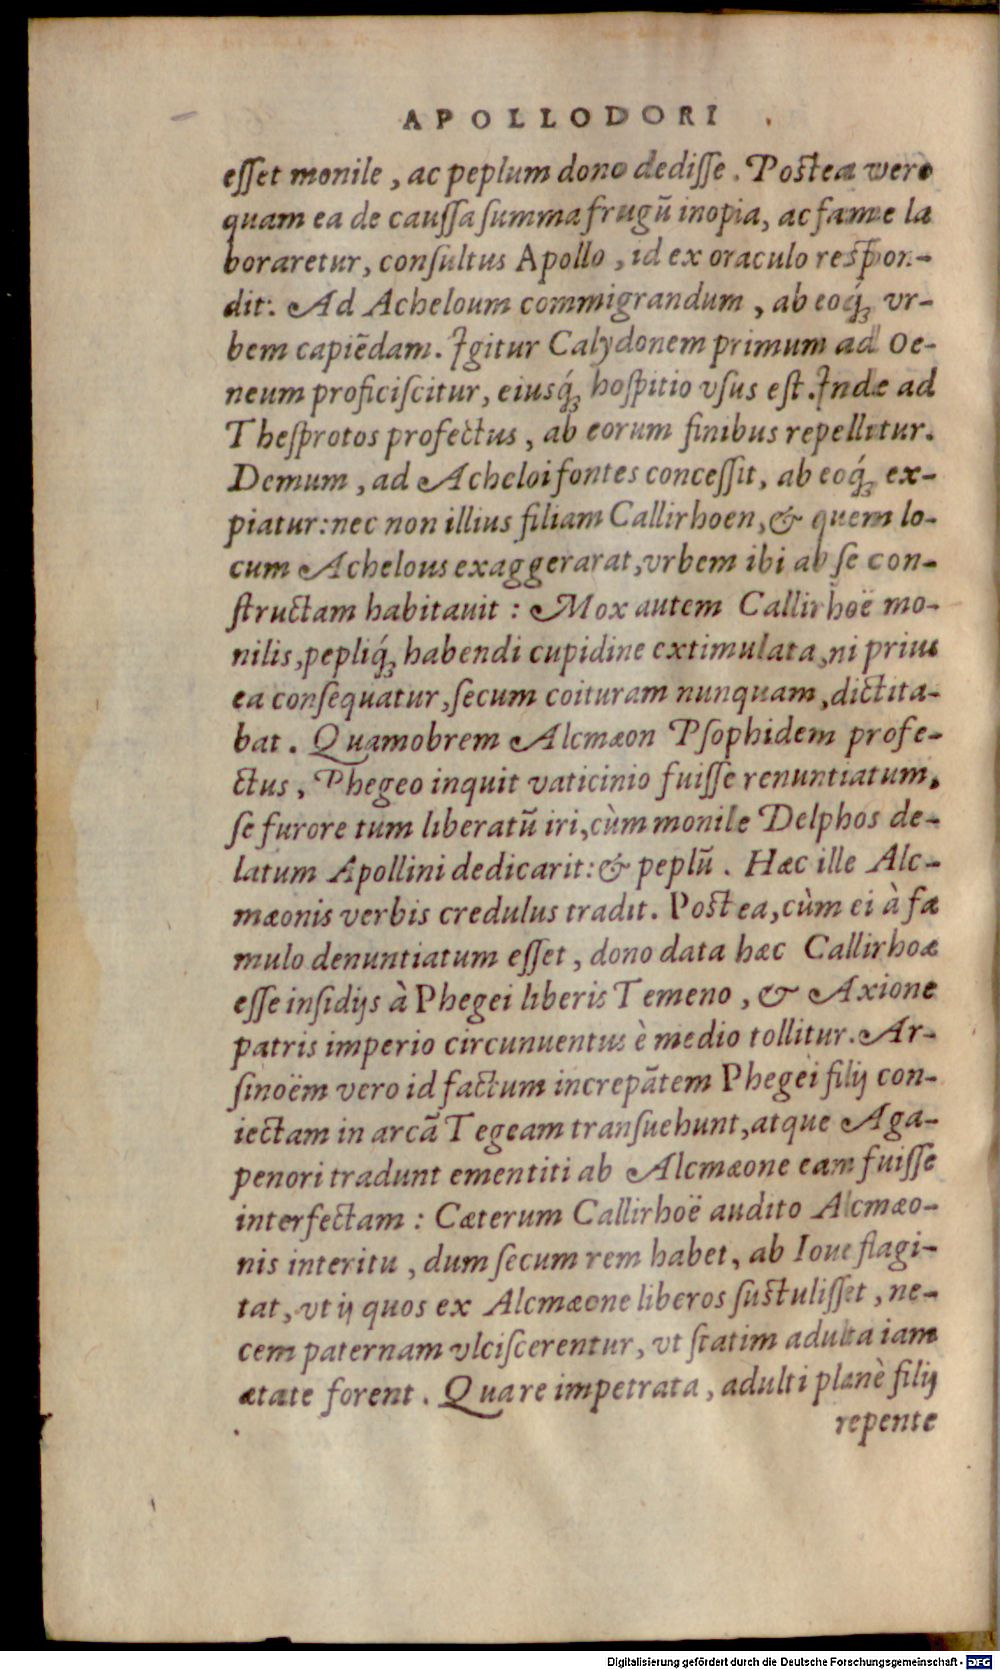 APOLLODORI
esset monile, ac peplum dono dedisse. Postea vero
quam ea de caussa summa frugū inopia, ac fame la
boraretur, consultus Apollo, id ex oraculo respon-
dit: Ad Acheloum commigrandum, ab eoq́ꝫ vr-
bem capiēdam. Igitur Calydonem primum ad Oe-
neum proficiscitur, eiusq́ꝫ hospitio vsus est. Inde ad
Thesprotos profectus, ab eorum finibus repellitur.
Demum, ad Acheloi fontes concessit, ab eoq́ꝫ ex-
piatur: nec non illius filiam Callirhoen, & quem lo-
cum Achelous exaggerarat, vrbem ibi ab se con-
structam habitauit: Mox autem Callirhoë mo-
nilis, pepliq́ꝫ habendi cupidine extimulata, ni prius
ea consequatur, secum coituram nunquam, dictita-
bat. Quamobrem Alcmæon Psophidem profe-
ctus, Phegeo inquit vaticinio fuisse renuntiatum,
se furore tum liberatū iri, cùm monile Delphos de-
latum Apollini dedicarit: & peplū. Hæc ille Alc-
mæonis verbis credulus tradit. Postea, cùm ei à fa
mulo denuntiatum esset, dono data hæc Callirhoæ
esse insidijs à Phegei liberis Temeno, & Axione
patris imperio circunuentus è medio tollitur. Ar-
sinoëm vero id factum increpātem Phegei filij con-
iectam in arcā Tegeam transuehunt, atque Aga-
penori tradunt ementiti ab Alcmæone eam fuisse
interfectam: Cæterum Callirhoë audito Alcmæo-
nis interitu, dum secum rem habet, ab Ioue flagi-
tat, vt ij quos ex Alcmæone liberos sustulisset, ne-
cem paternam vlciscerentur, vt statim adulta iam
ætate forent. Quare impetrata, adulti planè filij
repente
Digitalisierung gefördert durch die Deutsche Forschungsgemeinschaft - DFG